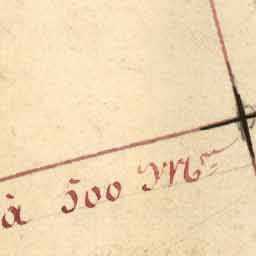 à 500 M^res